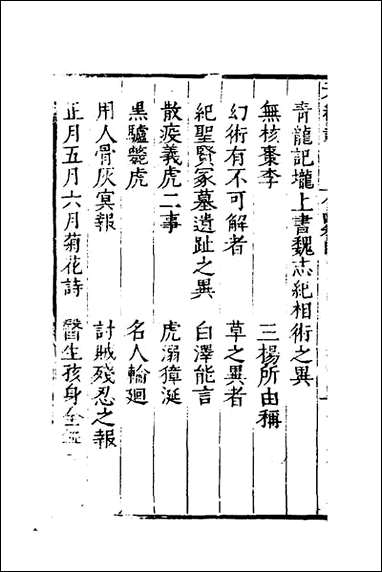 青龍記壠上書魏志紀相術之異
無核棗李　三楊所由稱
幻術有不可解者　草之異者
紀聖賢冢墓遺趾之異　白澤能言
散疫義虎二事　虎溺獐涎
黑驢斃虎　名人輪廻
用人骨灰冥報　討賊殘忍之報
正月五月六月菊花詩　醫生孩身全